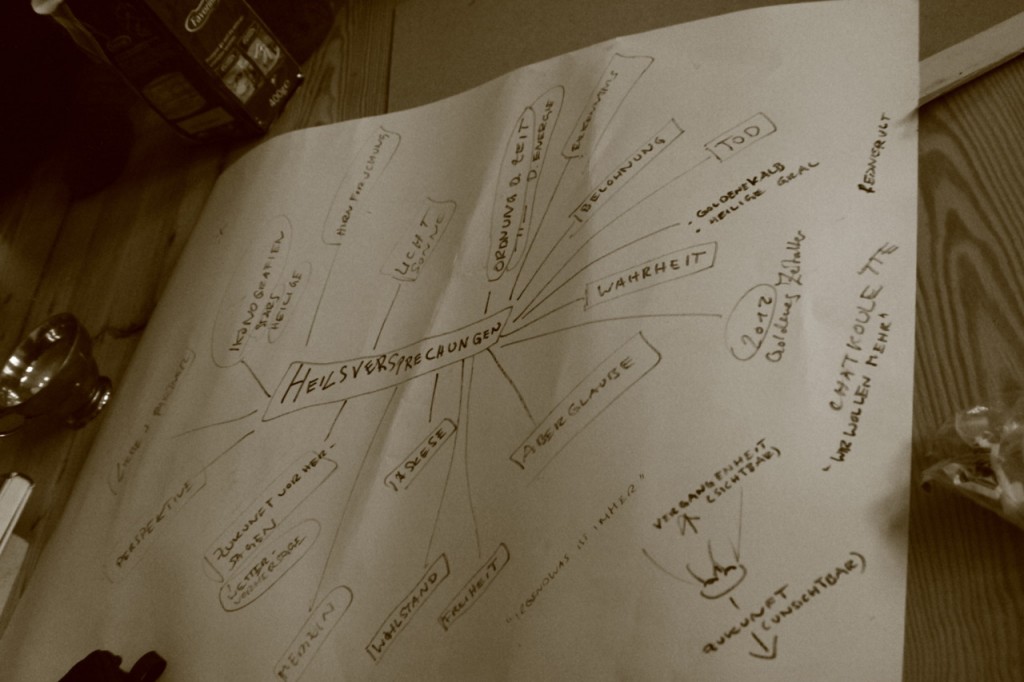 400g
HIRNFORSCHUNG
IKONOGRAFIEN
STARS
HEILIGE
LICHT
SONNE
ORDNUNG D. ZEIT
D. ENERGIE
ERKENNTNIS
BELOHNUNG
TOD
• GOLDENES KALB
• HEILIGE GRAL
WAHRHEIT
2012
Goldenes Zeitalter
HEILSVERSPRECHUNGEN
ABERGLAUBE
ASKESE
PERSPEKTIVE
ZUKUNFT VORHER-
SAGEN
WETTER-
VORHERSAGE
MEDIZIN
WOHLSTAND
FREIHEIT
"IRGENDWAS IST IMMER"
VERGANGENHEIT
(SICHTBAR)
ZUKUNFT
(UNSICHTBAR)
CHATROULETTE
"WIR WOLLEN MEHR"